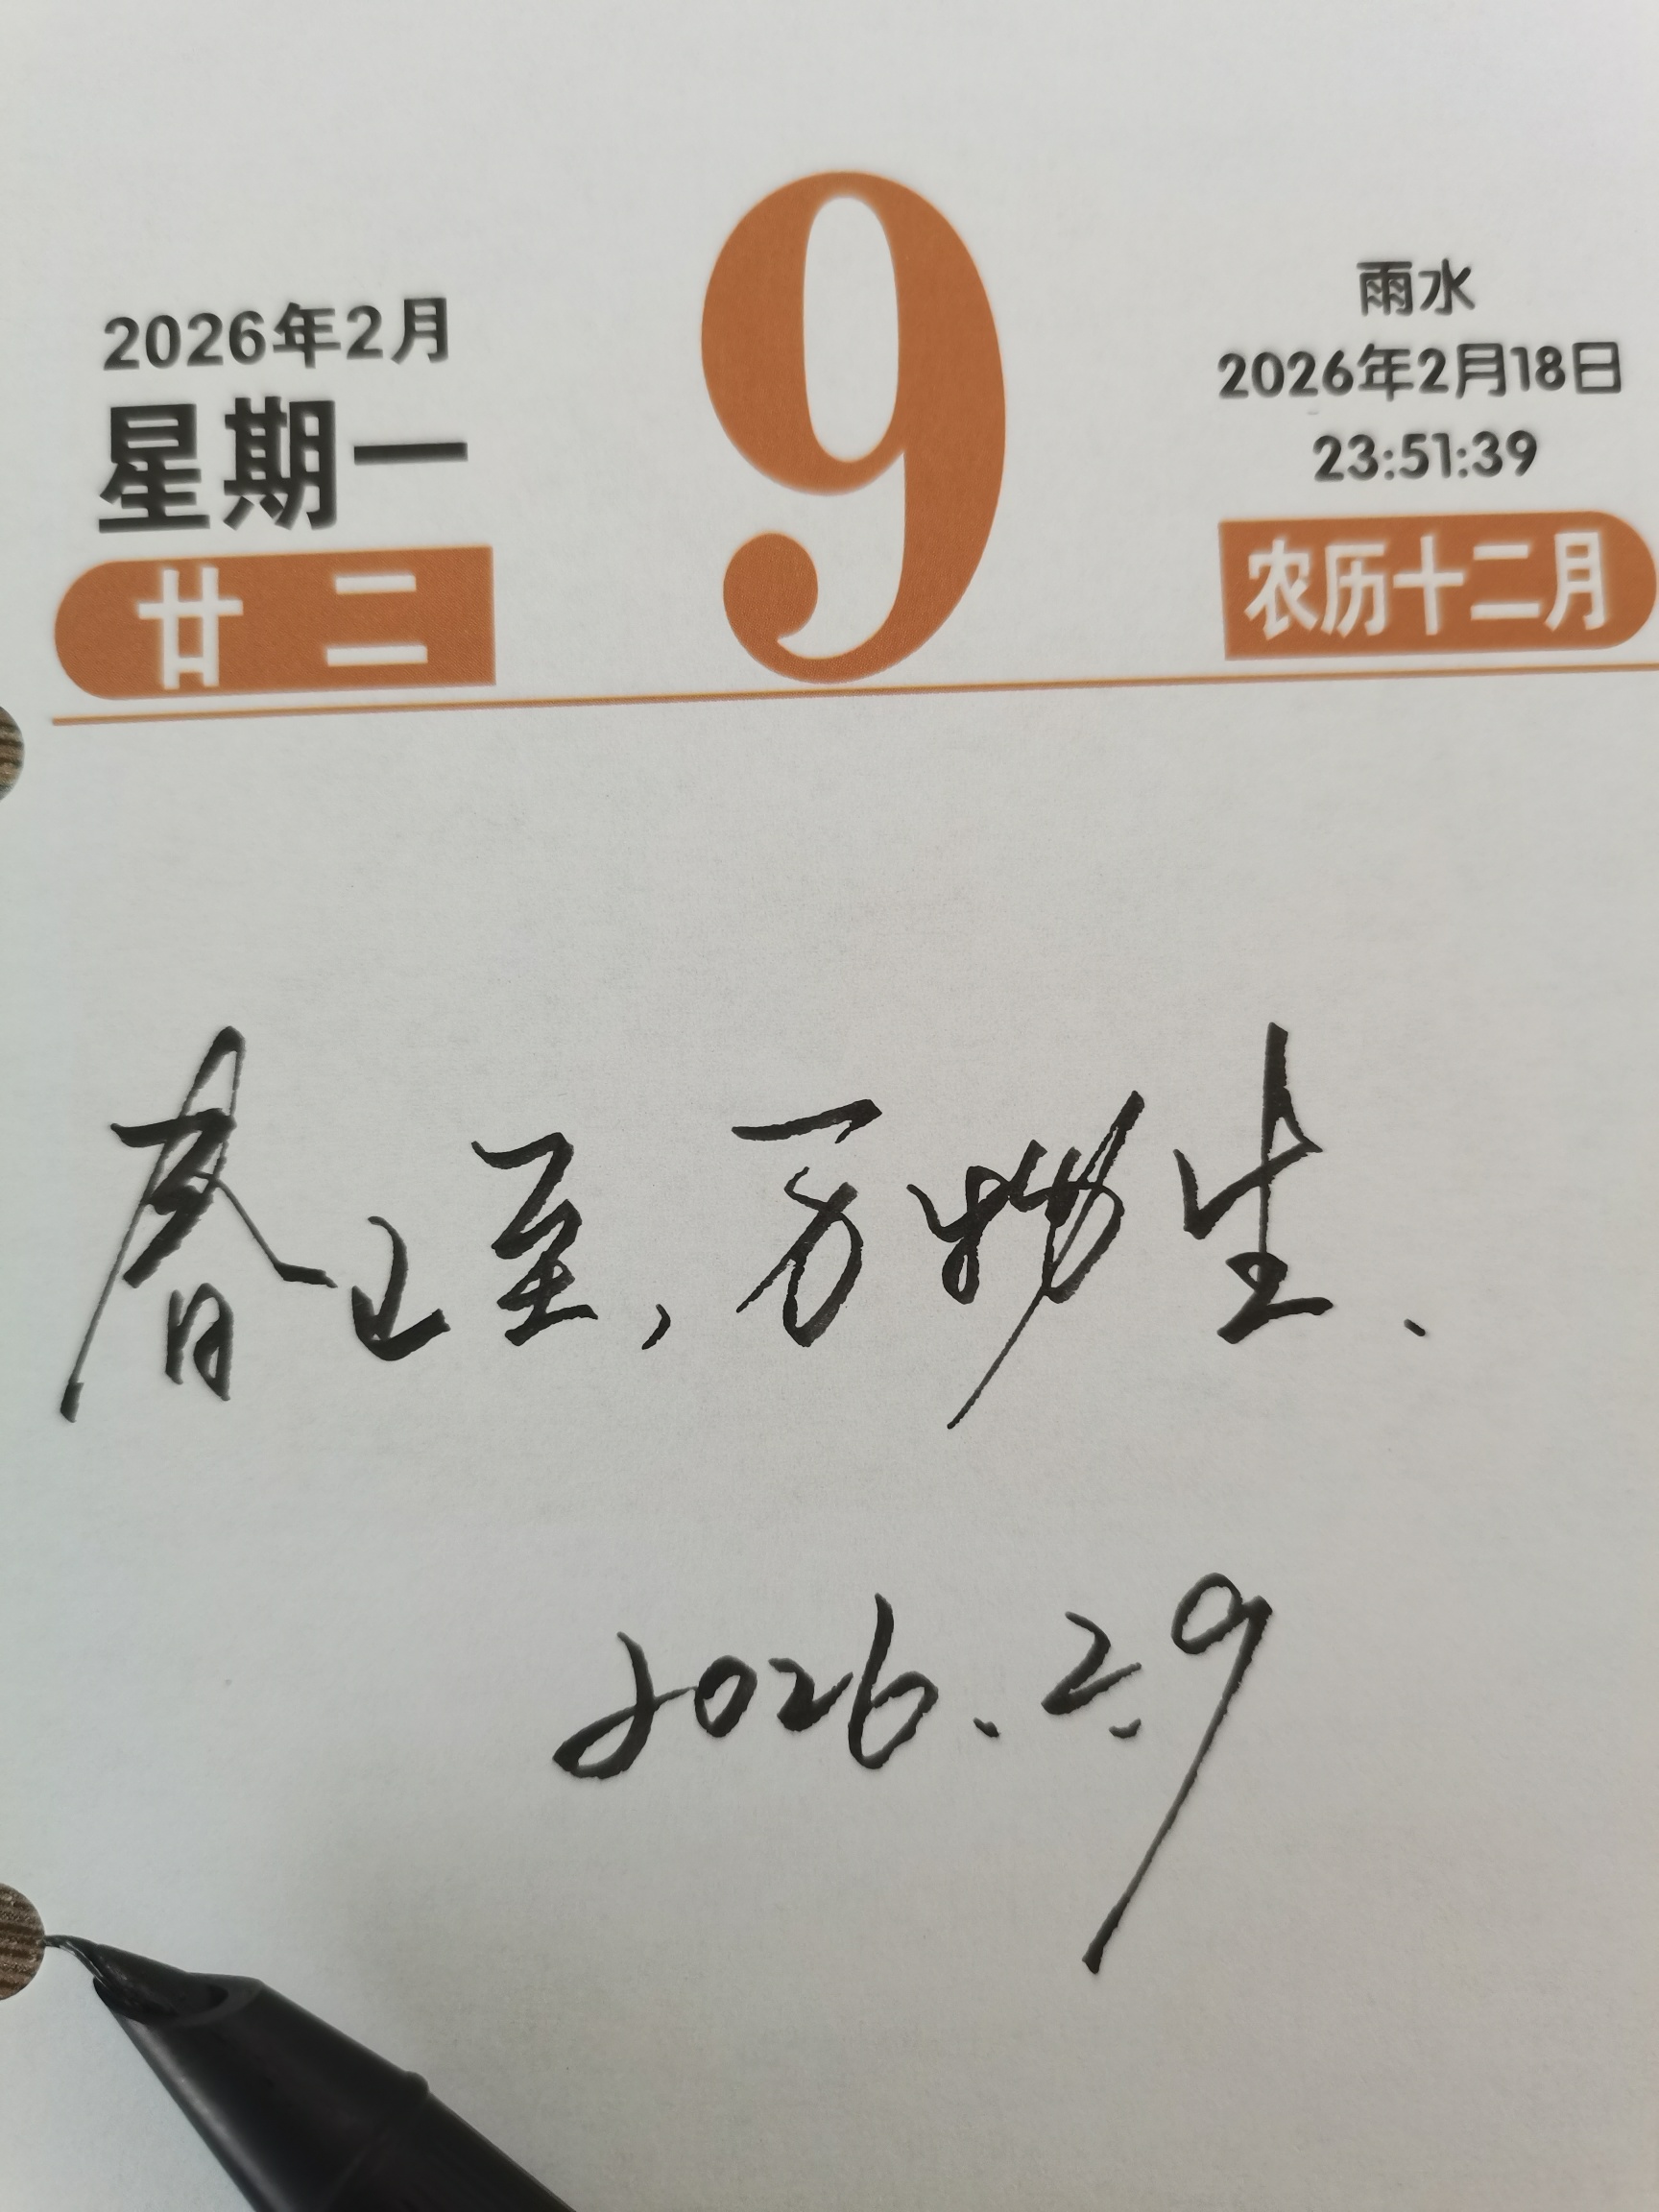 2026年2月
星期一
廿二
9
雨水
2026年2月18日
23:51:39
农历十二月
春已至，万物生.
2026.2.9